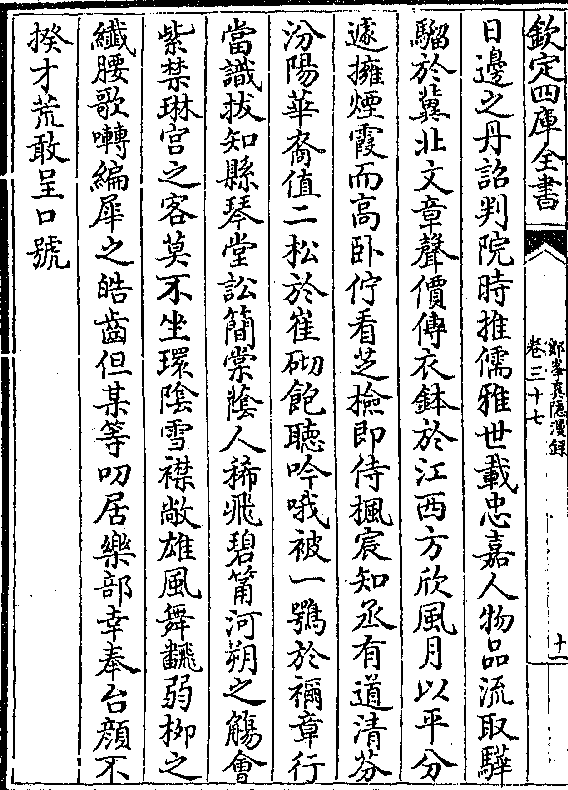 欽定四庫全書
鄮峯真隱漫錄
卷三十七
十一
日邊之丹詔判院時推儒雅世載忠嘉人物品流取驊
騮於冀北文章聲價傳衣鉢於江西方欣風月以平分
遽擁煙霞而高卧佇看芝撿即侍楓宸知丞有道清芬
汾陽華裔值二松於崔砌飽聽吟哦被一鶚於禰章行
當識拔知縣琴堂訟簡棠蔭人稀飛碧筩河朔之觴會
紫禁琳宫之客莫不坐環陰雪襟敞雄風舞翻弱栁之
纖腰歌囀編犀之皓齒但某等叨居樂部幸奉台顔不
揆才荒敢呈口號